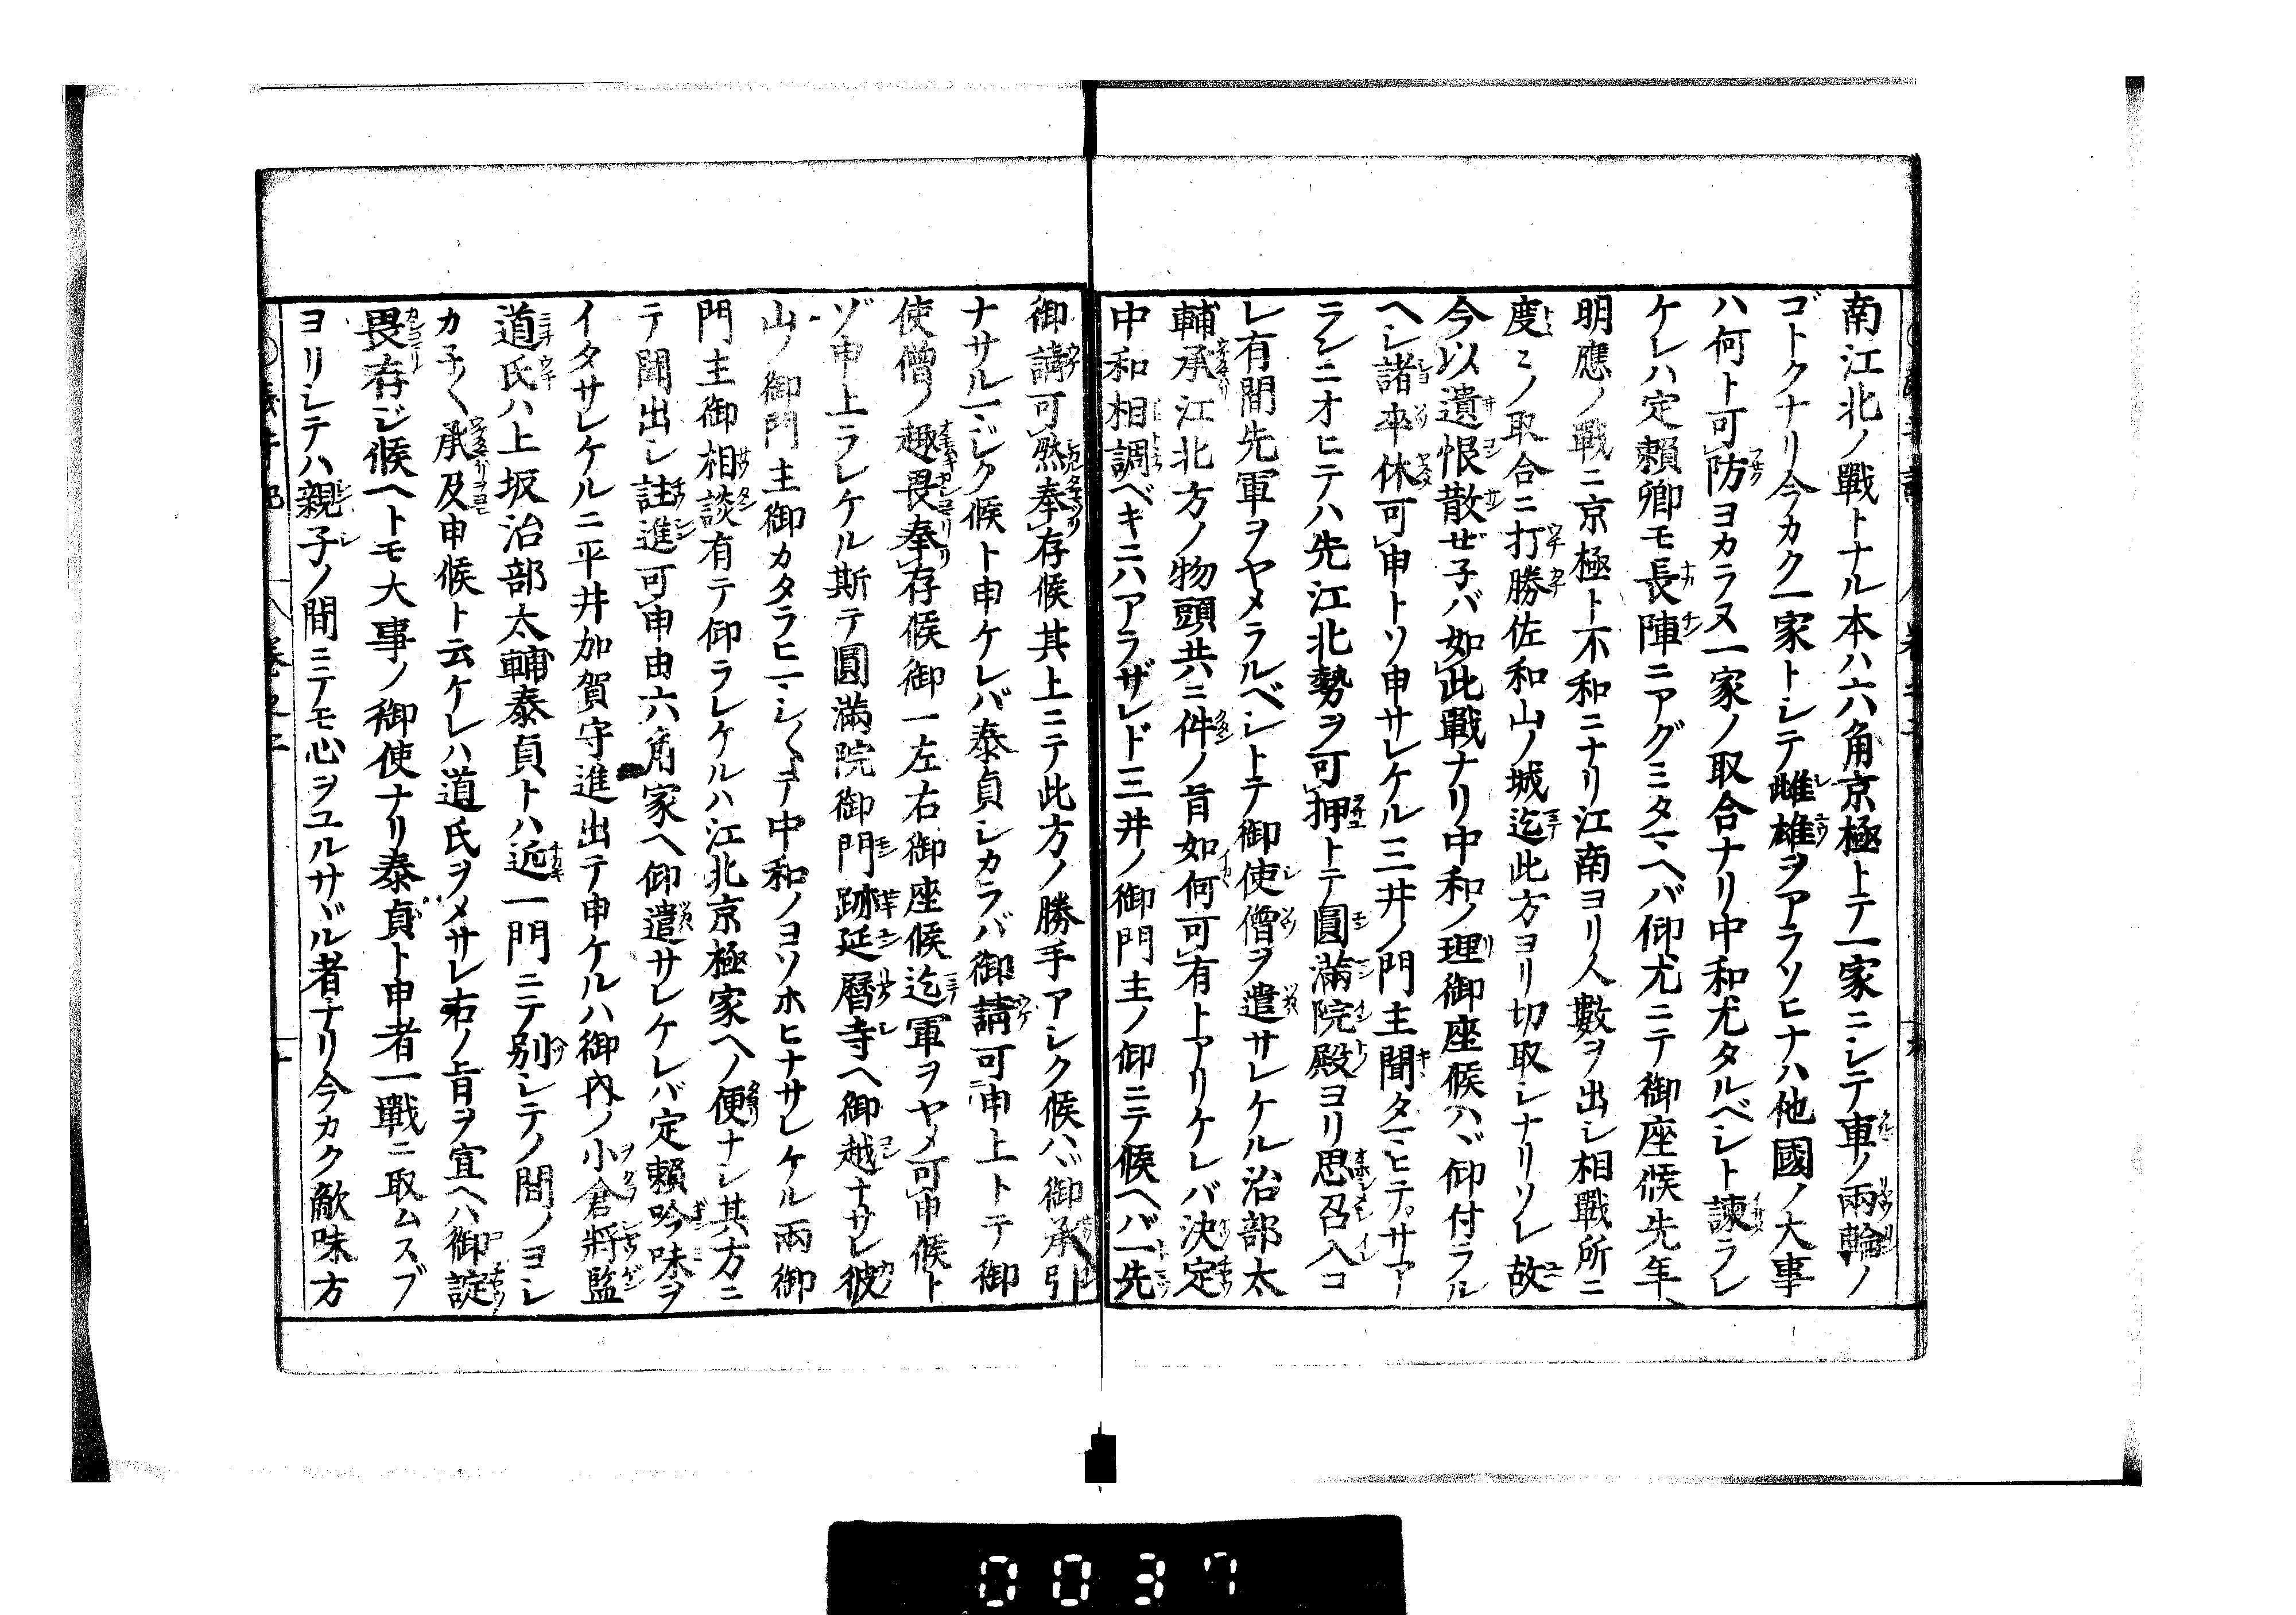 南江北ノ戰トナル本ハ六角京極トテ一家ニシテ車ノ兩輪ノ
ゴトクナリ今カク一家トシテ雌雄ヲアラソヒナハ他國ノ大事
ハ何ト可防ヨカラヌ一家ノ取合ナリ中和尤タルベシト諫ラレ
ケレハ定賴卿モ長陣ニアグミタマヘバ仰尤ニテ御座候先年
明應ノ戰ニ京極ト不和ニナリ江南ヨリ人數ヲ出シ相戰所ニ
度〻ノ取合ニ打勝佐和山ノ城迄此方ヨリ切取シナリソレ故
今以遺恨散ゼ子バ如此戰ナリ中和ノ理御座候ハヾ仰付ラル
ヘシ諸卒休可申トソ申サレケル三井ノ門主聞タマヒテサア
ラシニオヒテハ先江北勢ヲ可押トテ圓滿院殿ヨリ思召入コ
レ有間先軍ヲヤメラルベシトテ御使僧ヲ遣サレケル治部太
輔承江北方ノ物頭共ニ件ノ旨如何可有トアリケレバ決定
中和相調ベキニハアラザレド三井ノ御門主ノ仰ニテ候ヘバ一先
御請可然奉存候其上ニテ此方ノ勝手アシク候ハヾ御承引
ナサルマジク候ト申ケレバ泰貞シカラバ御請可申上トテ御
使僧ノ趣畏奉存候御一左右御座候迄軍ヲヤメ可申候ト
ゾ申上ラレケル斯テ圓滿院御門跡延曆寺ヘ御越ナサレ彼
山ノ御門主御カタラヒマシ〱テ中和ノヨソホヒナサレケル兩御
門主御相談有テ仰ラレケルハ江北京極家ヘノ便ナシ其方ニ
テ聞出シ註進可申由六角家ヘ仰遣サレケレバ定賴吟味ヲ
イタサレケルニ平井加賀守進出テ申ケルハ御內ノ小倉將監
道氏ハ上坂治部太輔泰貞トハ近一門ニテ別シテノ間ノヨシ
カ子〱承及申候ト云ケレハ道氏ヲメサレ右ノ旨ヲ宣ヘハ御諚
畏存ジ候ヘトモ大事ノ御使ナリ泰貞ト申者一戰ニ取ムスブ
ヨリシテハ親子ノ間ニテモ心ヲユルサヾル者ナリ今カク敵味方
0037